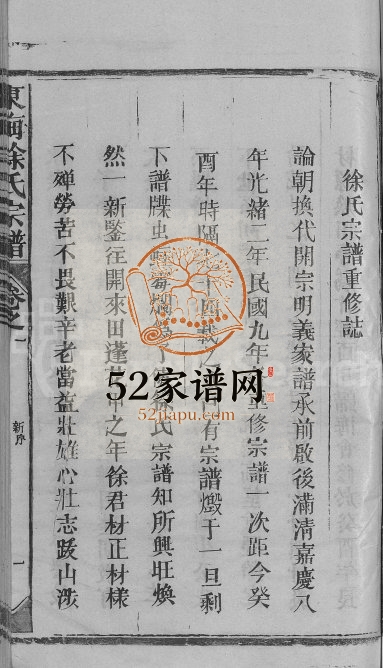 徐氏宗譜重修誌
論朝換代開宗明義家譜承前啟後滿清嘉慶八
年光緒二年民國九年重修宗譜一次距今癸
酉年時隔有宗譜燬于一旦剩
下譜牒氏宗譜知所興旺煥
然一新鑒往開來田蓬之年徐君材正材樣
不殫勞苦不畏艱辛老當益壯雄心壯志跋山涉
東海徐氏宗譜
卷之一
新序
一
52家谱网
52jiapu.com